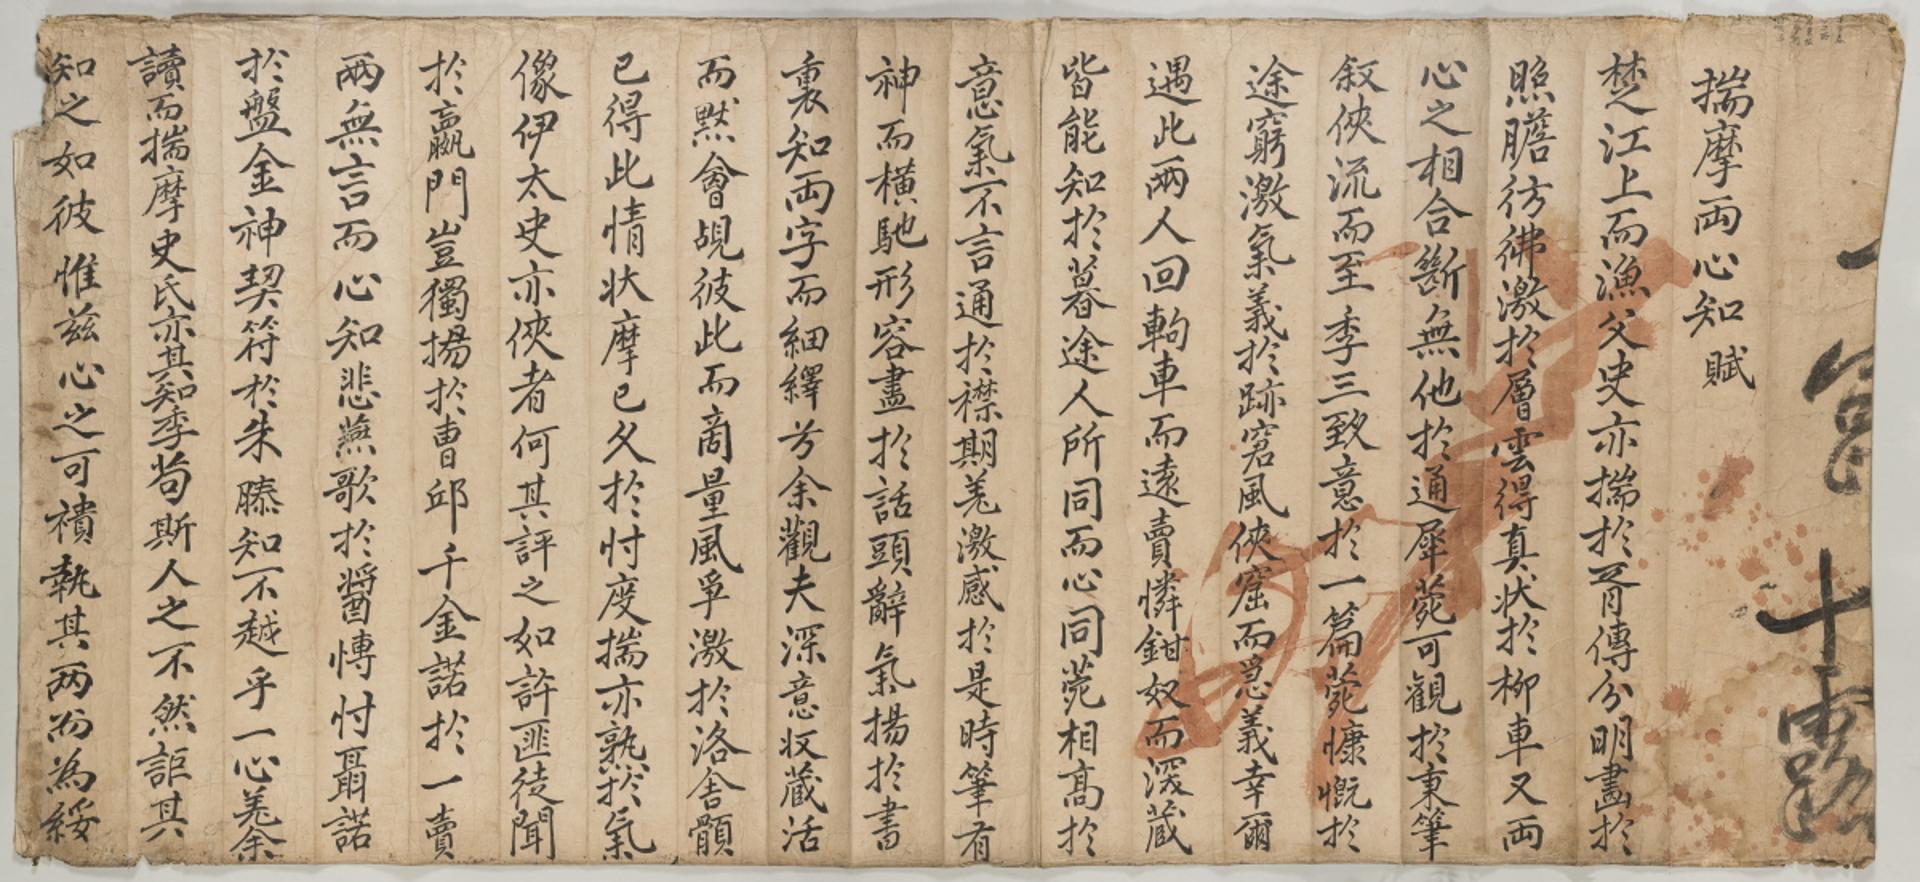 十露
揣摩両心知 賦
楚江上而漁父史亦揣於胥傳分明畫於
照膽彷彿激於層雲得真状於柳車又両
心之相合斷無他於通犀菀可観於秉筆
叙俠流而至季三致意於一篇菀慷慨於
途窮激氣義於跡窘風俠窟而急義幸爾
遇此兩人回軥車而遠賣憐鉗奴而深蔵
皆能知於暮途人所同而心同菀相髙於
意氣不言通於襟期羌激感於是時筆有
神而橫馳形容盡於話頭辭氣揚於書
裏知両字而細繹兮余觀夫深意収蔵活
而黙會覘彼此而啇量風爭激於洛舍顝
已得此情状摩已久於忖度揣亦熟於氣
像伊太史亦俠者何其評之如許匪徒聞
於嬴門豈獨揚於曺邱千金諾於一賣
兩無言而心知悲燕歌於醬慱忖聶諾
於盤金神契符於朱滕知不越乎一心羌余
讀而揣摩史氏亦其知季苟斯人之不然詎其
知之如彼惟兹心之可禶執其两而為綏